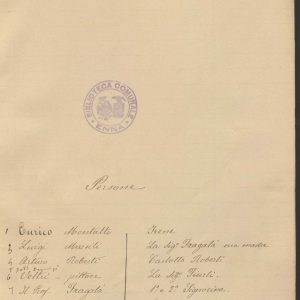 BIBLIOTECA COMUNALE
ENNA
Persone
1 Enrico Montalto Irene
2 Luigi La Sigª Fragalà sua madre
3 Arturo Roberti Carlotta Roberti
pittore La Sigª
7 Il Prof. Fragalà 1ª e 2ª Signorina